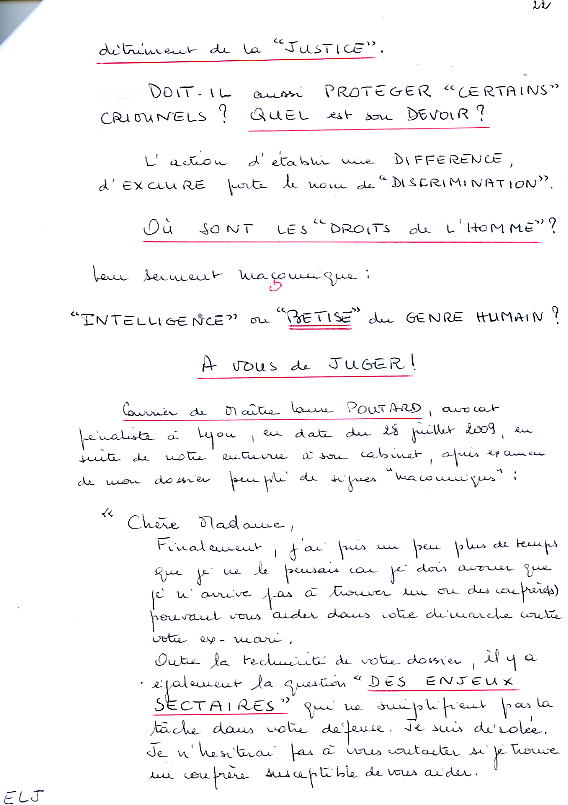 22
détriment de la "JUSTICE".
DOIT-IL aussi PROTEGER "CERTAINS"
CRIMINELS ? QUEL est son DEVOIR ?
L'action d'établir une DIFFERENCE,
d'EXCLURE porte le nom de "DISCRIMINATION".
OÙ SONT LES "DROITS de L'HOMME" ?
Leur serment maçonnique :
"INTELLIGENCE" ou "BETISE" du GENRE HUMAIN ?
A VOUS de JUGER !
Courrier de Maître Laure POUTARD, avocat
pénaliste à Lyon, en date du 28 juillet 2009, en
suite de notre entrevue à son cabinet, après examen
de mon dossier peuplé de signes "maçonniques" :
" Chère Madame,
Finalement, j'ai pris un peu plus de temps
que je ne le pensais car je dois avouer que
je n'arrive pas à trouver un ou des confrère(s)
pouvant vous aider dans votre démarche contre
votre ex-mari.
Outre la technicité de votre dossier, il y a
également la question "DES ENJEUX
SECTAIRES" qui ne simplifient pas la
tâche dans votre défense. Je suis désolée.
Je n'hesiterai pas à vous contacter si je trouve
un confrère susceptible de vous aider.
ELJ